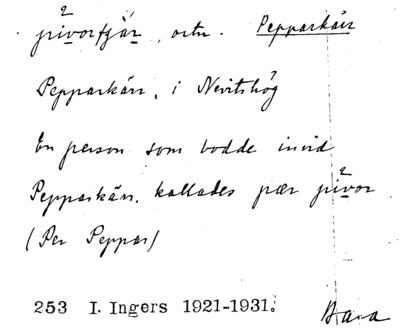 pivorſjär, ortn. Pepparkärr
Pepparkärr, i Nevitshög
En person som bodde invid
Pepparkärr, kallades pær pivor
(Per Peppar)
253 I. Ingers 1921-1931. Bara